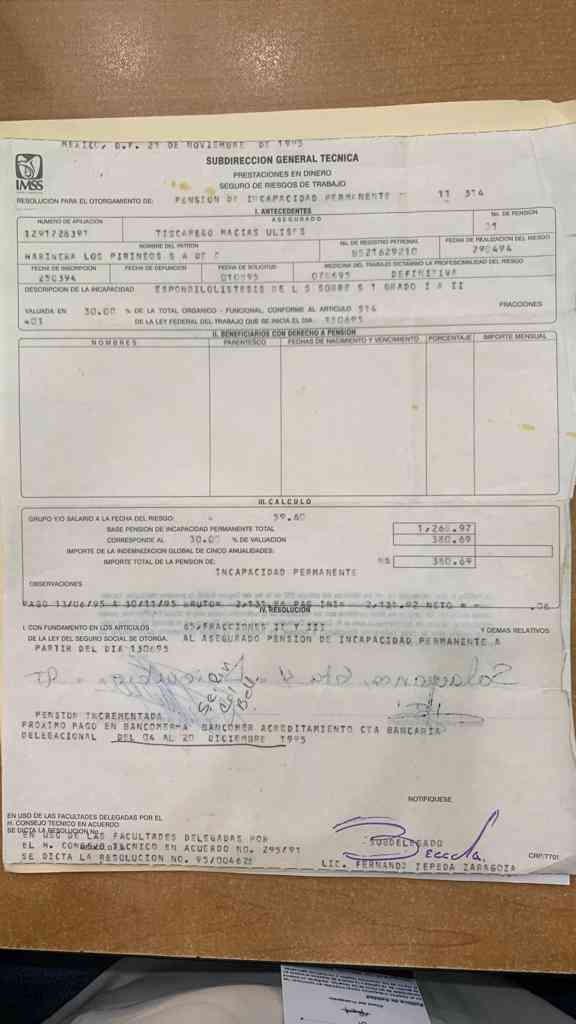 MEXICO, D.F. 21 DE NOVIEMBRE DE 1995
IMSS
SUBDIRECCION GENERAL TECNICA
PRESTACIONES EN DINERO
SEGURO DE RIESGOS DE TRABAJO
RESOLUCION PARA EL OTORGAMIENTO DE: PENSION DE INCAPACIDAD PERMANENTE 11 514
I. ANTECEDENTES
NUMERO DE AFILIACION ASEGURADO No. DE PENSION
TISCAREÑO MACIAS ULISES 01
NOMBRE DEL PATRON No. DE REGISTRO PATRONAL FECHA DE REALIZACION DEL RIESGO
HARINERA LOS PIRINEOS S A DE C B521629210 290494
FECHA DE INSCRIPCION FECHA DE DEFUNCION FECHA DE SOLICITUD MEDICINA DEL TRABAJO DICTAMINO LA PROFESIONALIDAD DEL RIESGO
250394 010895 DEFINITIVA
DESCRIPCION DE LA INCAPACIDAD ESPONDILOLISTESIS DE L 5 SOBRE S 1 GRADO I A II
VALUADA EN 30.00 % DE LA TOTAL ORGANICO - FUNCIONAL, CONFORME AL ARTICULO 514 FRACCIONES
401 DE LA LEY FEDERAL DEL TRABAJO QUE SE INICIA EL DIA 130695
II. BENEFICIARIOS CON DERECHO A PENSION
NOMBRES PARENTESCO FECHAS DE NACIMIENTO Y VENCIMIENTO PORCENTAJE IMPORTE MENSUAL
III. CALCULO
GRUPO Y/O SALARIO A LA FECHA DEL RIESGO: 59.60
BASE PENSION DE INCAPACIDAD PERMANENTE TOTAL 1,268.97
CORRESPONDE AL 30.00 % DE VALUACION 380.69
IMPORTE DE LA INDEMNIZACION GLOBAL DE CINCO ANUALIDADES:
IMPORTE TOTAL DE LA PENSION DE: N$ 380.69
INCAPACIDAD PERMANENTE
OBSERVACIONES
PAGO 13/06/95 A 30/11/95 BRUTO= 2,131.86 2,131.92 NETO = .06
IV. RESOLUCION
I. CON FUNDAMENTO EN LOS ARTICULOS 65, FRACCIONES II Y III Y DEMAS RELATIVOS
DE LA LEY DEL SEGURO SOCIAL SE OTORGA. AL ASEGURADO PENSION DE INCAPACIDAD PERMANENTE A
PARTIR DEL DIA 130695
PENSION INCREMENTADA
PROXIMO PAGO EN BANCOMER BANCOMER ACREDITAMIENTO CTA BANCARIA
DELEGACIONAL DEL 04 AL 20 DICIEMBRE 1995
NOTIFIQUESE
EN USO DE LAS FACULTADES DELEGADAS POR EL
H. CONSEJO TECNICO EN ACUERDO
SE DICTA LA RESOLUCION No.
EN USO DE LAS FACULTADES DELEGADAS POR
EL H. CONSEJO TECNICO EN ACUERDO NO. 295/91
SE DICTA LA RESOLUCION NO. 95/004625
SUBDELEGADO
LIC. FERNANDO ZEPEDA ZARAGOZA
CRP/7701